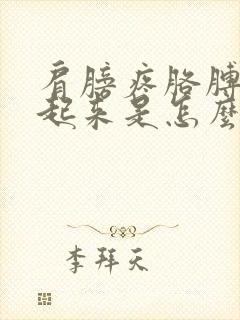 肩膀疼胳膊
起来是怎么
李拜天